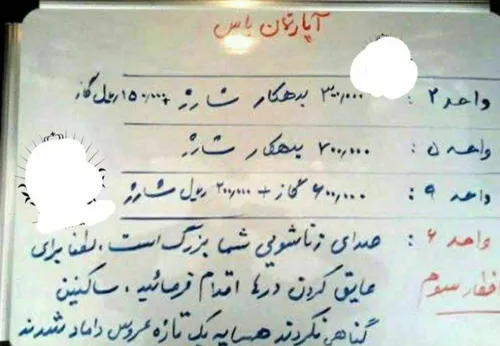 آپارتمان یاس
واحد ۲ : ۳۰۰٫۰۰۰ بدهکار شارژ + ۱۵۰٫۰۰۰ ریال گاز
واحد ۵ : ۷۰۰٫۰۰۰ بدهکار شارژ
واحد ۹ : ۶۰۰٫۰۰۰ گاز + ۲۰۰٫۰۰۰ ریال شارژ
واحد ۶ : صدای زناشویی شما بزرگ است ، لطفا برای
اخطار سوم عایق کردن درها اقدام فرمائید ، ساکنین
گناهی نکردند همسایه یک تازه عروس داماد شدند